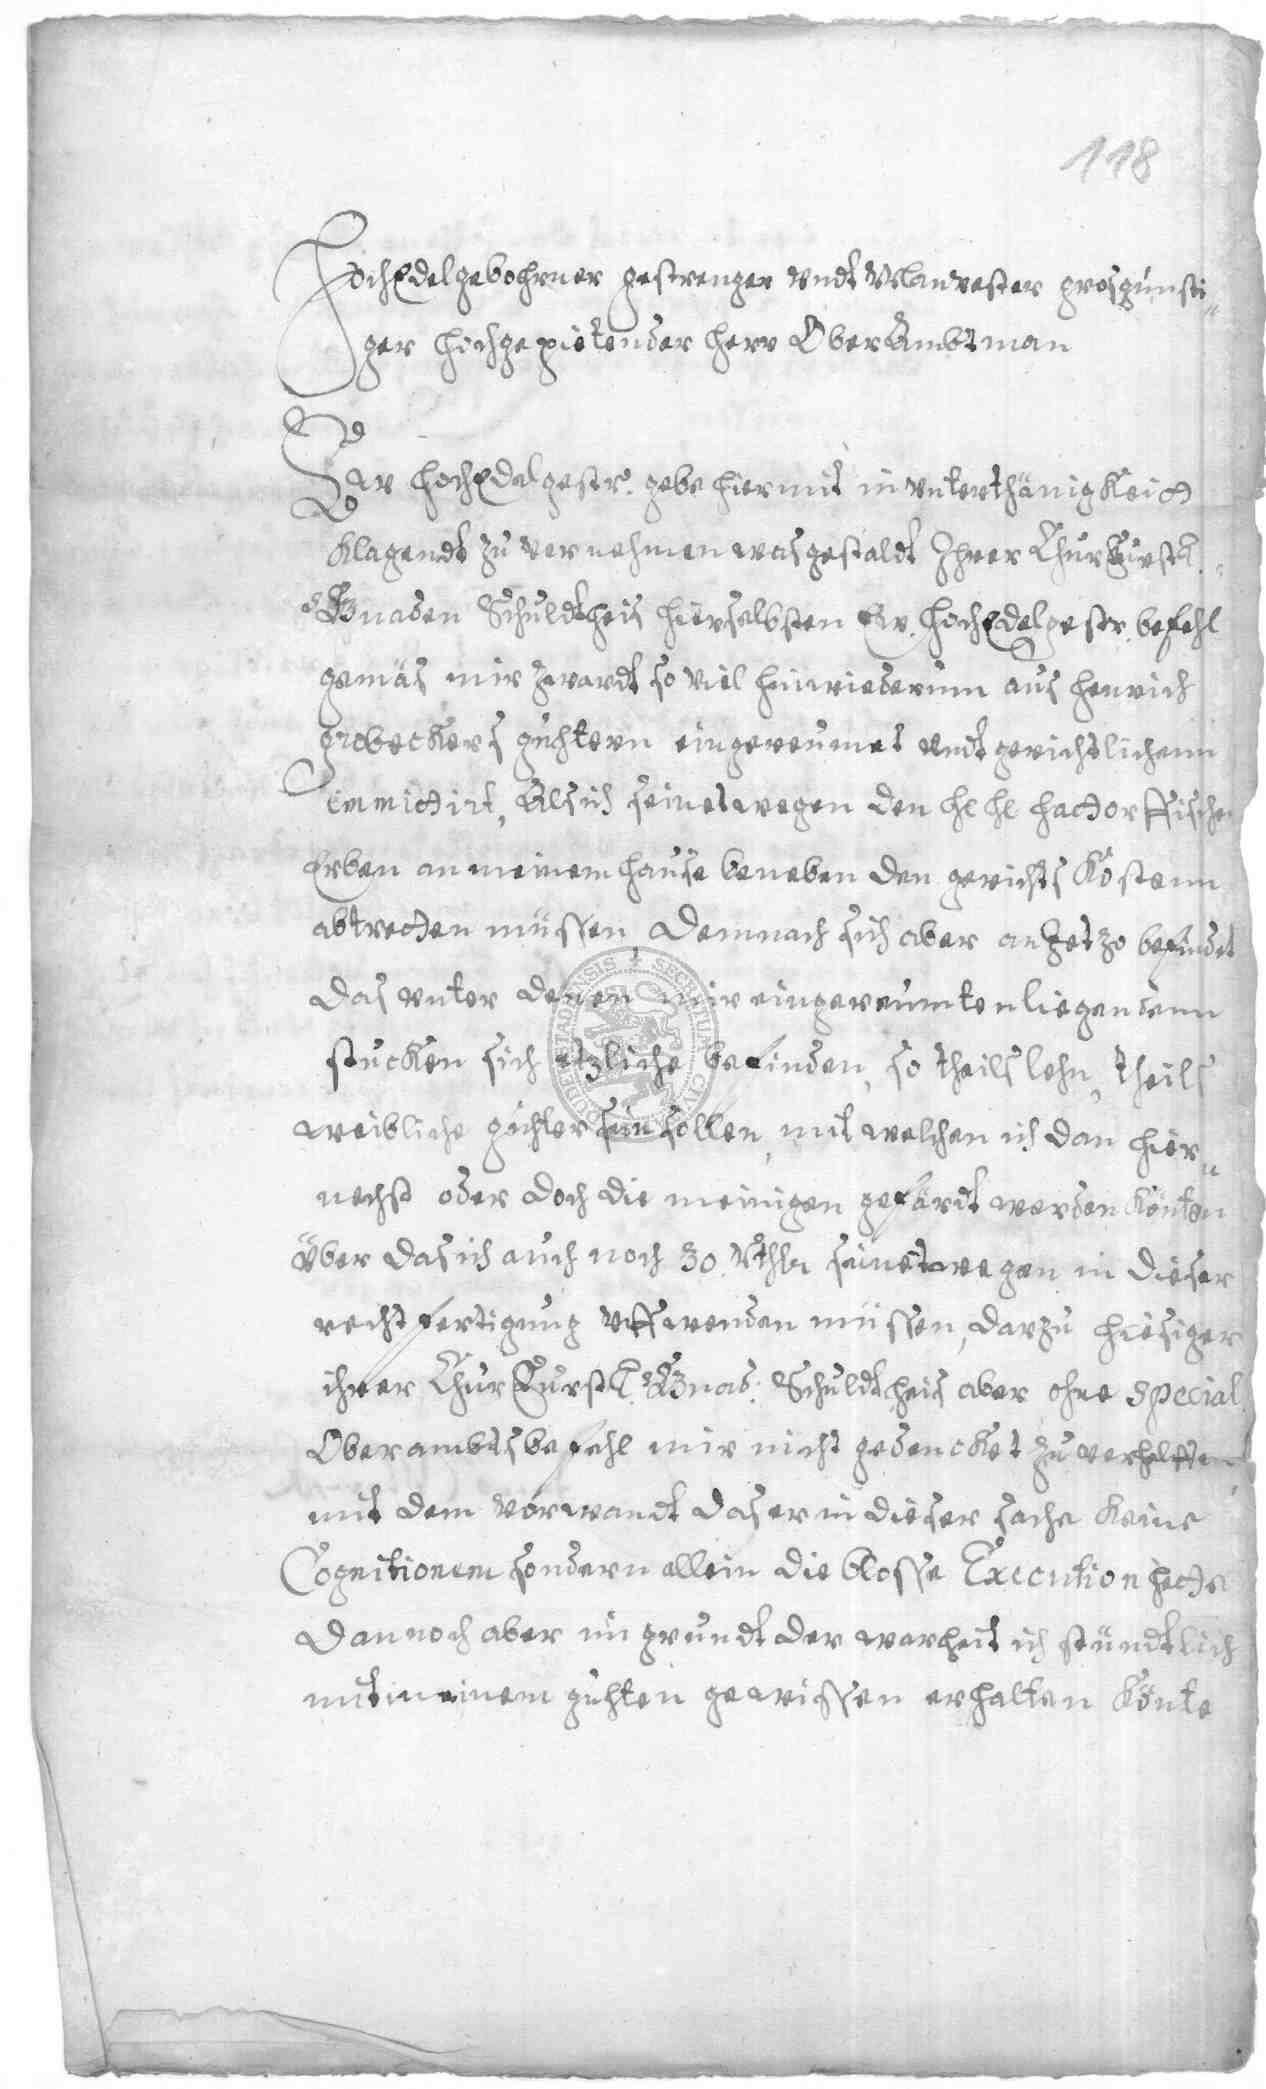 118
HochEdelgebohrner gestrenger vndt Vhanvester grosgünsti„
ger hochgepietender herr OberAmbtman
Ew hochEdelgestr. gebe hiermit in vnterthänigkeitt
klagendt zu vernehmen wasgestaldt Ihrer ChurFürstl.
Gnaden Schuldtheis hierselbsten Ew. HochEdelgestr. befehl
gemäs mir zwardt so viel hinwiederumm aus Henrich
grobeckers gühtern eingereumet vndt gerichtlichenn
immittirt, Als ich seinetwegen den hl hl hattorffischen
Erben an meinem hause beneben den gerichts Kostenn
abtretten müssen, Demnach sich aber anjetzo befindet
das vnter denen mir eingereumten liegendenn
stucken sich etzliche befinden, so theils lehn, theils
weibliche gühter sein sollen, mit welchen ich dan hier„
nechst oder doch die meinigen gefärdt werden könten
über das ich auch noch 30 Rthlr seinetwegen in dieser
rechtfertigung vffwenden müssen, darzu hiesiger
ihrer ChurFurstl. Gnad. Schuldtheis aber ohne special
Oberambtsbefehl mir nicht gedencket zu verhelffen
mit dem vorwandt das er in dieser sache keine
Cognitionem sondern allein die blosse Execution hette
Dannoch aber im grundt der warheit ich stündtlich
mit meinem guhten gewissen erhalten könte
SECRETUM CIV DUDERSTADENSIS